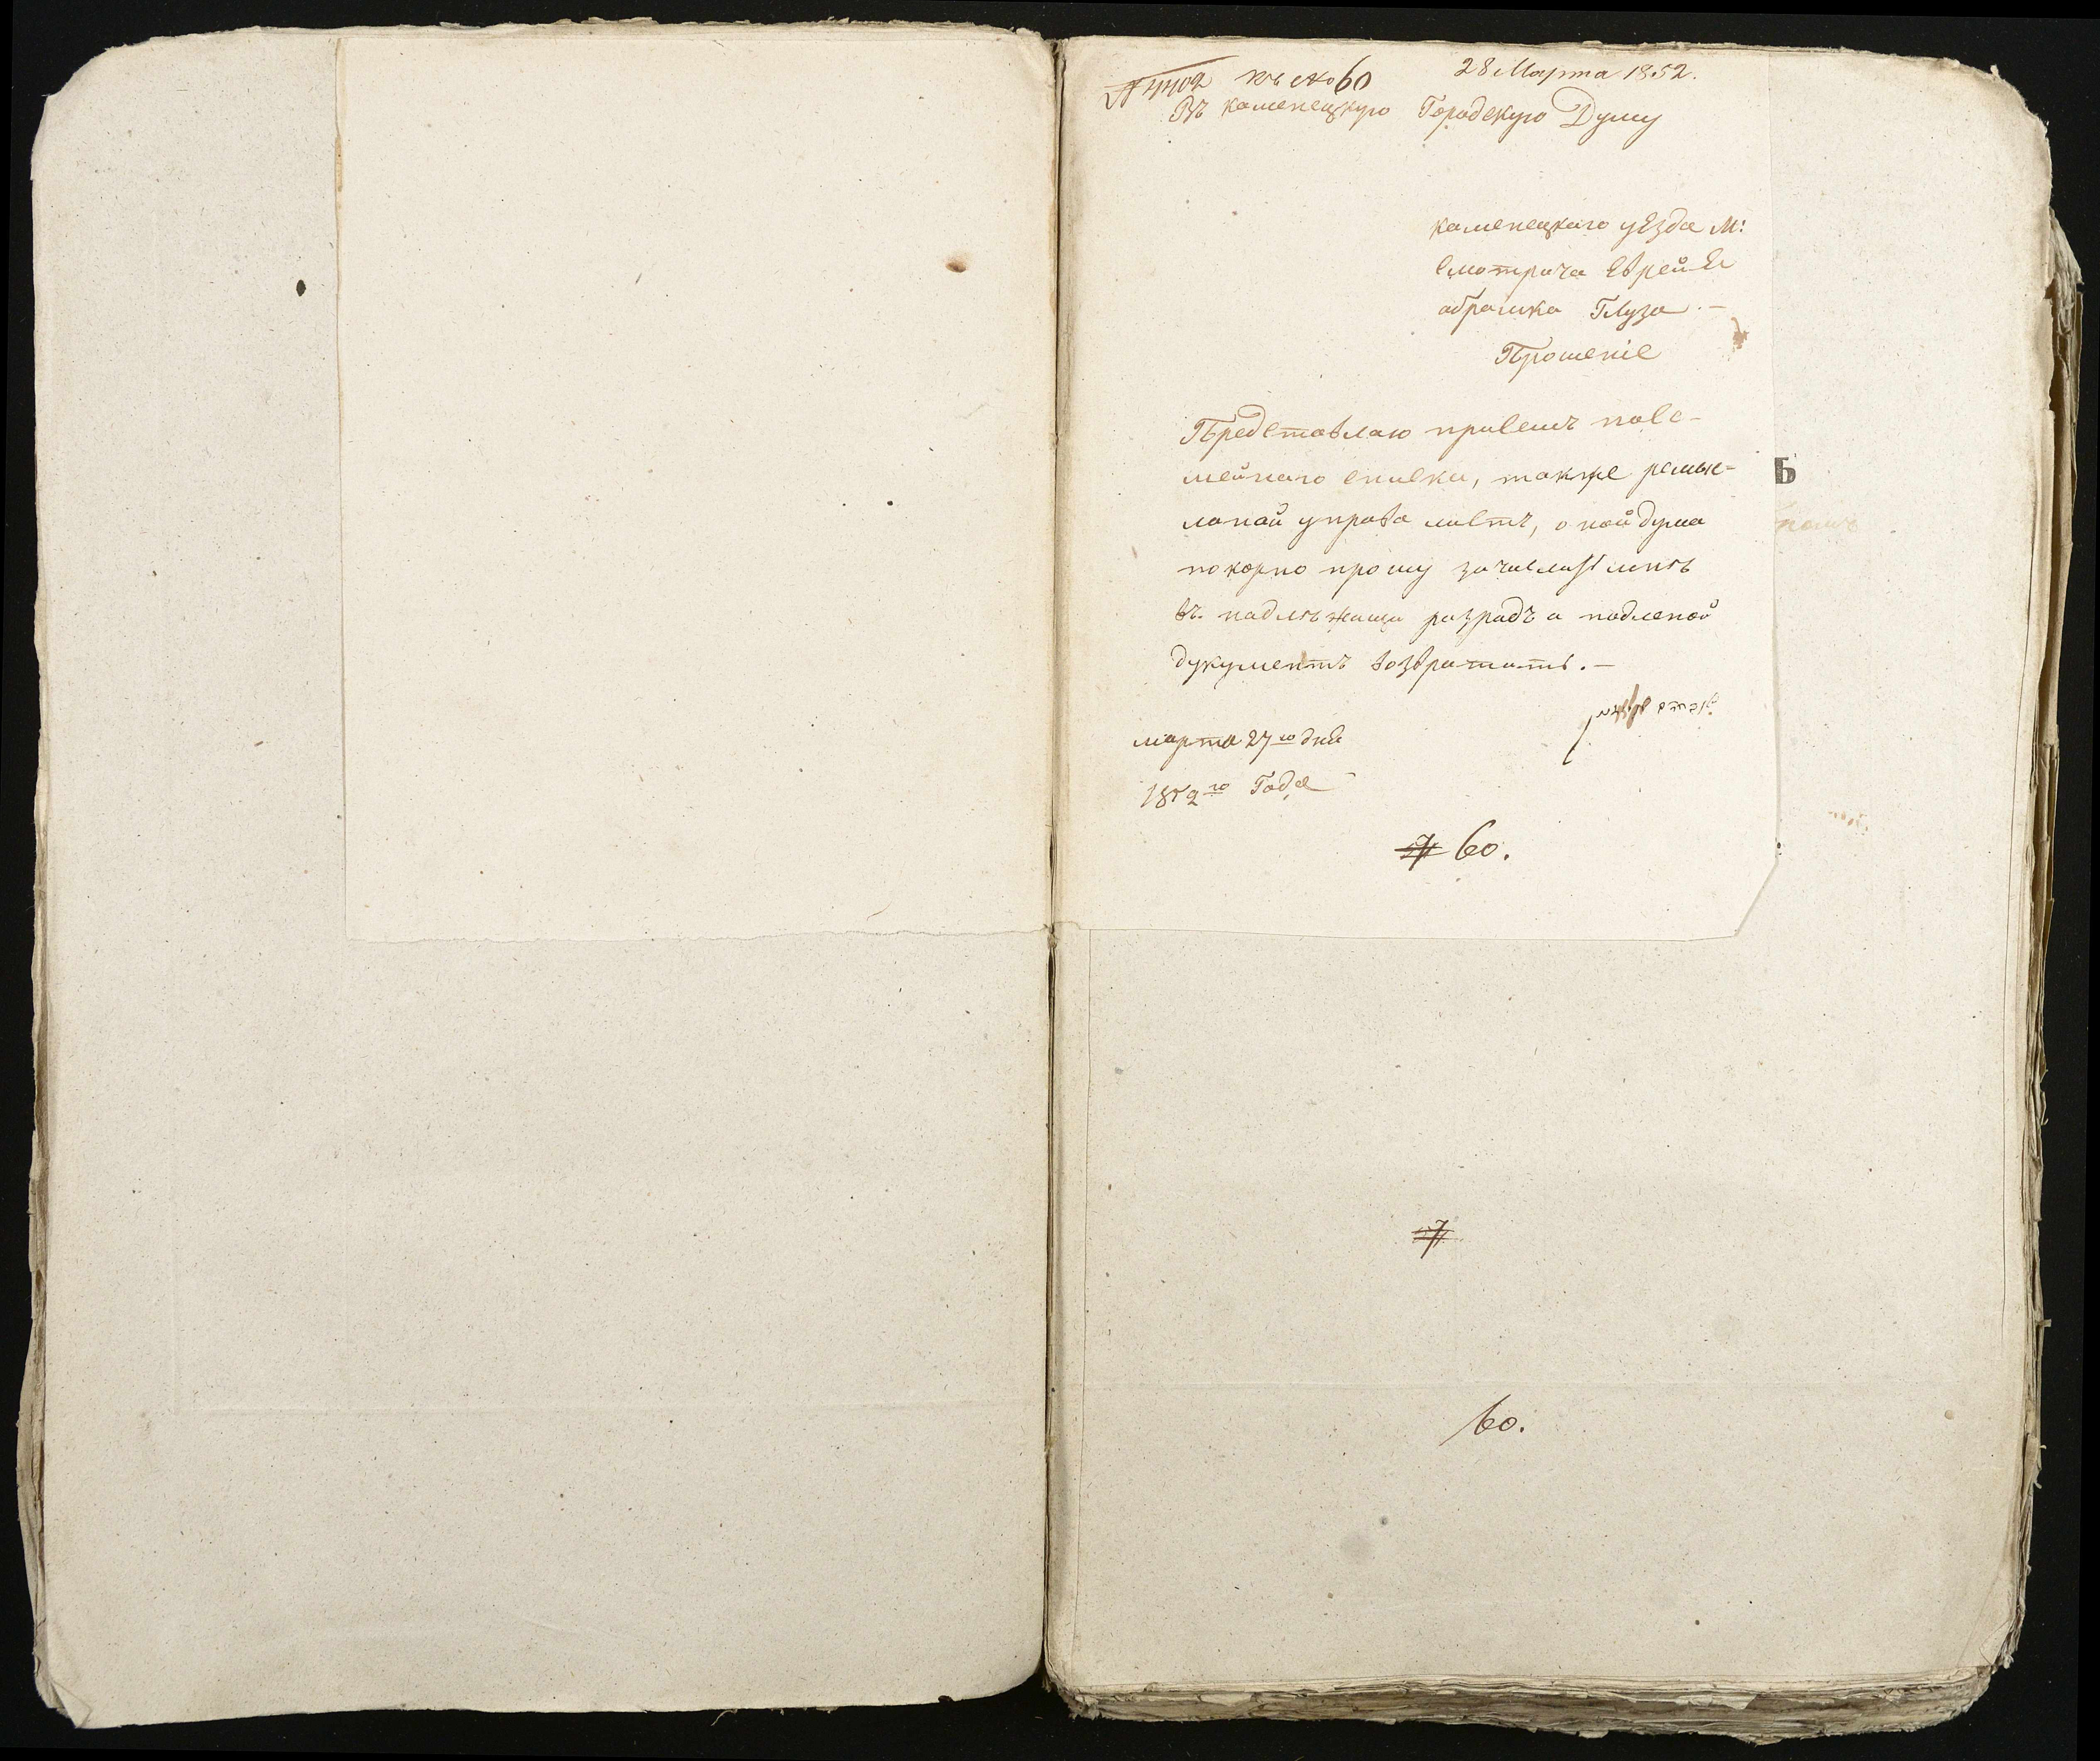 № 4402 къ ст 60 28 Марта 1852.
Въ каменецкую Городскую Думу
каменецкаго уезда м:
Смотрича Еврей Ее
абрамка Глуза.—
Прошеніе
Представлаю присемъ посе-
мейнаго списка, также ремис-
ланай управа листъ, о ной дума
покорно прошу зачислит мне
въ. надлежищи разрадъ а подленой
дукументъ возвратить.—
марта 27го дня
1852го Года
57 60.
Ъ
57
60.